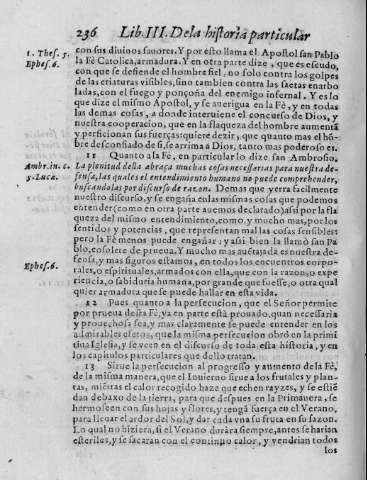 236 Lib. III. De la historia particular
1. Thes. 5.
Ephes. 6.
con sus diuinos fauores. Y por esto llama el Apostol san Pablo
la Fè Catolica, armadura. Y en otra parte dize, que es escudo,
con que se defiende el hombre fiel, no solo contra los golpes
de las criaturas visibles, sino tambien contra las saetas enarbo
ladas, con el fuego y ponçoña del enemigo infernal. Y es lo
que dize el mismo Apostol, y se auerigua en la Fè, y en todas
las demas cosas, a donde interuiene el concurso de Dios, y
nuestra cooperacion, que en la flaqueza del hombre aumenta
y perficionan sus fuerças: quiere dezir, que quanto mas el hõ
bre desconfiado de si, se arrima à Dios, tanto mas poderoso es.
11 Quanto a la Fè, en particular lo dize san Ambrosio,
Ambr. in c.
5. Lucæ.
La plenitud della abraça muchas cosas necessarias para nuestra de-
fensa, las quales el entendimiento humano no puede comprehender,
buscandolas por discurso de razon. Demas que yerra facilmente
nuestro discurso, y se engaña en las mismas cosas que podemos
entender (como en otra parte auemos declarado) assi por la fla
queza del mismo entendimiento, como, y mucho mas, por los
sentidos y potencias, que representan mal las cosas sensibles
pero la Fè menos puede engañar: y assi bien la llamò san Pa
Ephes. 6.
blo, coselete de prueua. Y mucho mas auentajada es nuestra de-
fensa, y mas siguros estamos, en todos los encuentros corpo-
rales, o espirituales, armados con ella, que con la razon, o expe
riencia, o sabiduria humana, por grande que fuesse, o otra qual
quier armadura que se puede hallar en esta vida.
12 Pues quanto a la persecucion, que el Señor permite
por prueua desta Fè, ya en parte està prouado, quan necessaria
y prouechosa sea, y mas claramente se puede entender en los
admirables efetos, que la misma persecucion obrò en la primi
tiua Iglesia, y se verà en el discurso de toda esta historia, y en
los capitulos particulares que dello tratan.
13 Sirue la persecucion al progresso y aumento de la Fè,
de la misma manera, que el Inuierno sirue a los frutales y plan-
tas, miẽtras el calor recogido haze que echen rayzes, y se estiẽ
dan debaxo de la tierra, para que despues en la Primauera, se
hermoseen con sus hojas y flores, y tengã fuerça en el Verano,
para lleuar el ardor del Sol, y dar cada vna su fruta en su sazon.
Lo qual no hiziera, si el Verano duràra siempre, antes se harian
esteriles, y se sacaran con el continuo calor, y vendrian todos
los